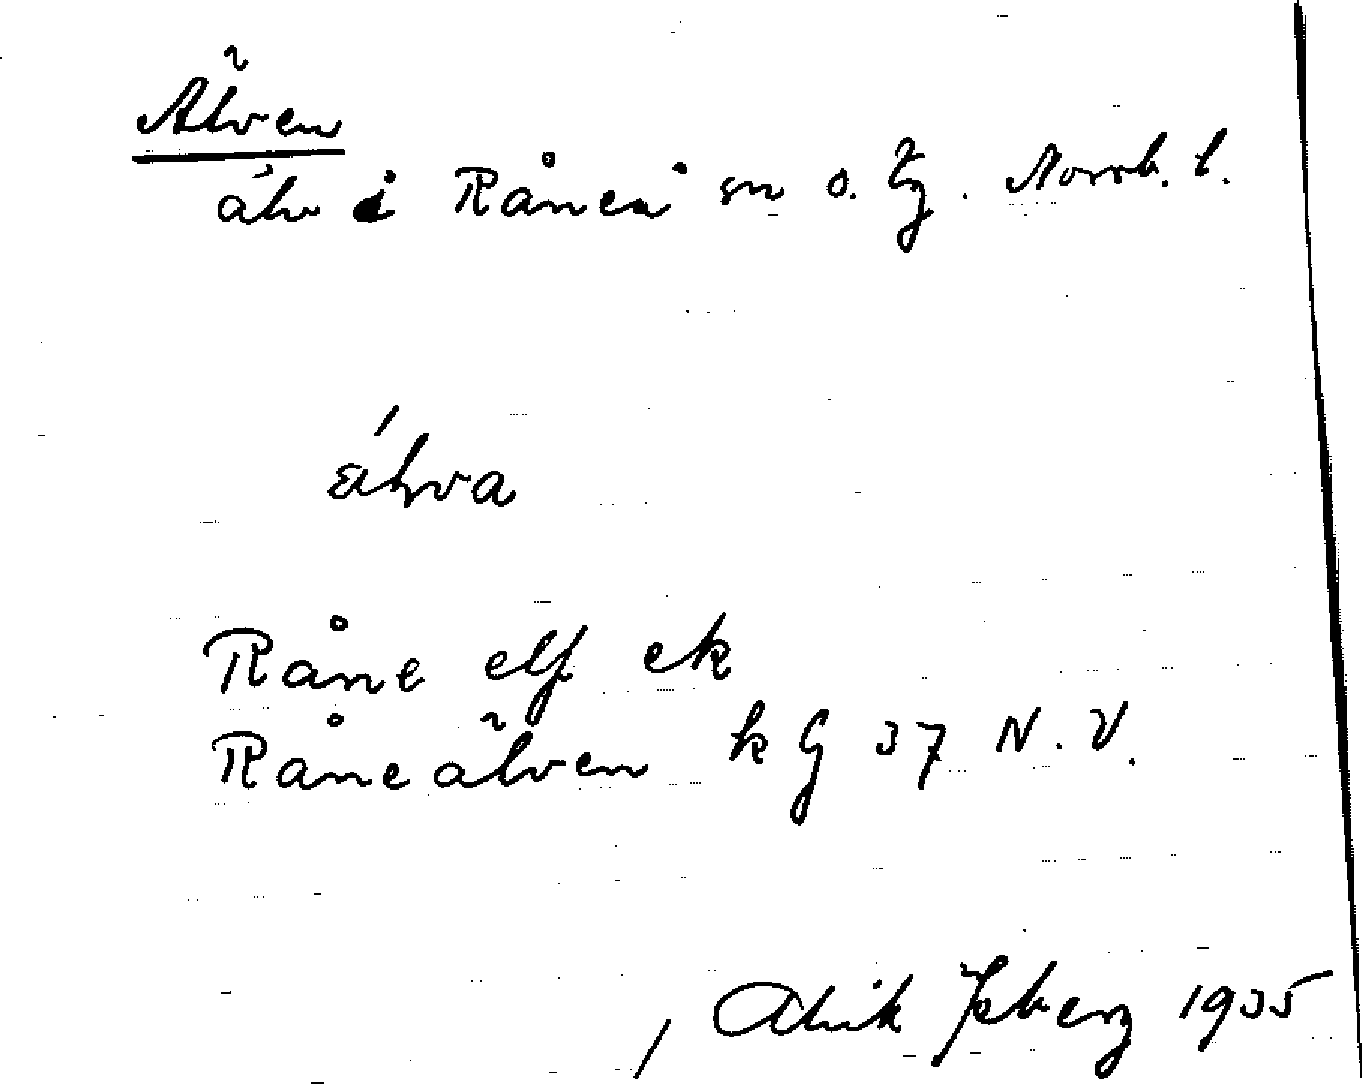 Älven
älv i Råneå sn o. tg. Norrb. l.
älva
Råne elf ek
Råneälven kG 37 N.V.
Alrik Isberg 1935